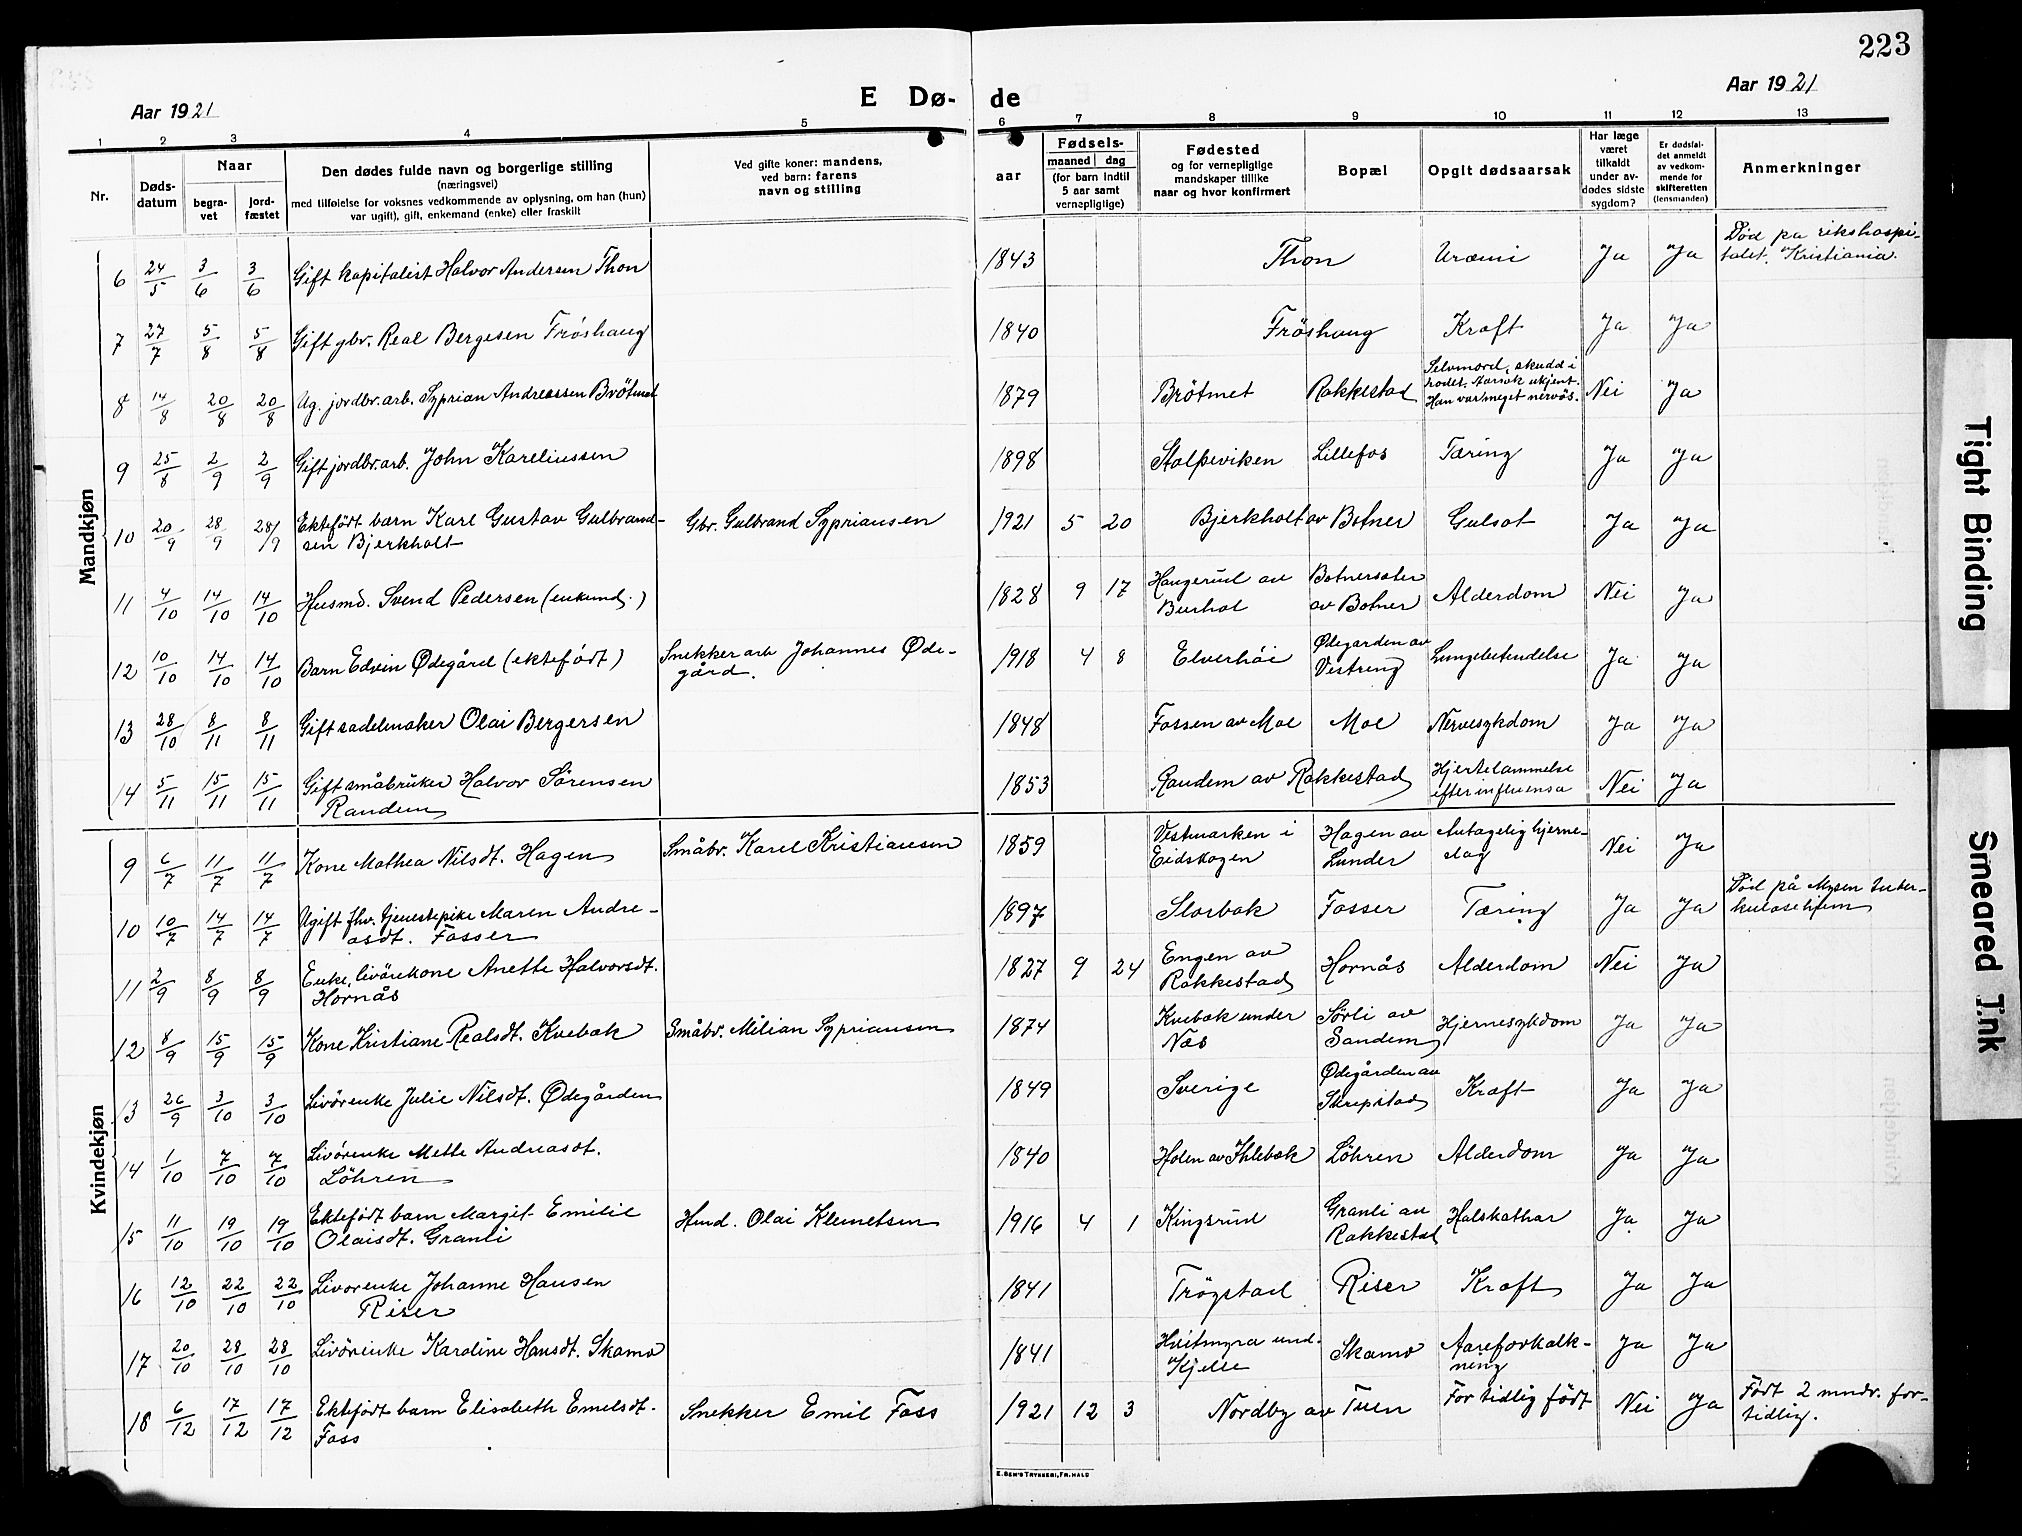 223
Aar 1921
E Dø-
de
Aar 1921
1 2 3 4 5 6 7 8 9 10 11 12 13
Nr.
Døds-
datum
Naar
begra-
vet
jord-
fæstet
Den dødes fulde navn og borgerlige stilling
(næringsvei)
med tilføielse for voksnes vedkommende av oplysning, om han (hun)
var ugift), gift, enkemand (enke) eller fraskilt
Ved gifte koner: mandens,
ved barn: farens
navn og stilling
Fødsels-
aar
maaned dag
(for barn indtil
5 aar samt
vernepligtige)
Fødested
og for vernepligtige
mandskaper tillike
naar og hvor konfirmert
Bopæl
Opgit dødsaarsak
Har læge
været
tilkaldt
under av-
dødes sidste
sygdom?
Er dødsfal-
det anmeldt
av vedkom-
mende for
skifteretten
(lensmanden)
Anmerkninger
Mandkjøn
6 24/5 3/6 3/6 Gift kapitalist Halvor Andersen Thon 1843 Thon Uræmi Ja Ja Død pa rikshospi-
talet, Kristiania.
7 27/7 5/8 5/8 Gift gbr. Real Bergesen Frøshaug 1840 Frøshaug Kræft Ja Ja
8 14/8 20/8 20/8 Ug. jordbr. arb. Syprian Andreassen Brøtmet 1879 Brøtmet Rakkestad Selvmord, skudd i
hodet. Aarsak ukjent.
Han var meget nervøs. Nei Ja
9 25/8 2/9 2/9 Gift jordbr. arb. John Kareliussen 1898 Stolpeviken Lillefos Tæring Ja Ja
10 20/9 28/9 28/9 Ektefødt barn Karl Gustav Gulbrand-
sen Bjerkholt Gbr. Gulbrand Sypriansen 1921 5 20 Bjerkholt av Botner Gulsot Ja Ja
11 4/10 14/10 14/10 Husmd. Svend Pedersen (enkemd.) 1828 9 17 Haugerud av
Burhol Botnersæter
av Botner Alderdom Nei Ja
12 10/10 14/10 14/10 Barn Edvin Ødegård (ektefødt) Snekker arb Johannes Øde-
gård. 1918 4 8 Elverhøi Ødegarden av
Vestreng Lungebetendelse Ja Ja
13 28/10 8/11 8/11 Gift sadelmaker Olai Bergersen 1848 Fossen av Moe Moe Nervesykdom Ja Ja
14 5/11 15/11 15/11 Gift småbruker Halvor Sørensen
Randem 1853 Randem av Rakkestad Hjertelammelse
efter influensa Nei Ja
Kvindekjøn
9 6/7 11/7 11/7 Kone Mathea Nilsdt. Hagen Småbr. Karel Kristiansen 1859 Vestmarken i
Eidskogen Hagen av
Lunder Antagelig hjerne-
slag Nei Ja
10 10/7 14/7 14/7 Ugift fhv. tjenestepike Maren Andre-
asdt. Fosser 1897 Storbæk Fosser Tæring Ja Ja Død på Mysen tuber-
kulosehjem
11 2/9 8/9 8/9 Enke, livørekone Anette Halvorsdt.
Hornås 1827 9 24 Engen av
Rakkestad Hornås Alderdom Nei Ja
12 8/9 15/9 15/9 Kone Kristiane Realsdt. Kvebæk Småbr. Milian Sypriansen 1874 Kvebæk under
Næs Sørli av
Sandem Hjernesykdom Ja Ja
13 26/9 3/10 3/10 Livørenke Julie Nilsdt. Ødegården 1849 Sverige Ødegården av
Skrepstad Kræft Ja Ja
14 1/10 7/10 7/10 Livørenke Mette Andreasdt.
Løhren 1840 Holen av Ihlebæk Løhren Alderdom Ja Ja
15 11/10 19/10 19/10 Ektefødt barn Margit Emilie
Olaisdt. Granli Hmd. Olai Klemetsen 1916 4 1 Kingsrud Granli av
Rakkestad Halskathar Ja Ja
16 12/10 22/10 22/10 Livørenke Johanne Hansen
Riser 1841 Trøgstad Riser Kræft Ja Ja
17 20/10 28/10 28/10 Livørenke Karoline Hansdt. Skamo 1841 Hvitmyra und.
Kjelle Skamo Aareforkalk-
ning Ja Ja
18 6/12 17/12 17/12 Ektefødt barn Elisabeth Emilsdt.
Foss Snekker Emil Foss 1921 12 3 Nordby av Tuen For tidlig født Nei Ja Født 2 mndr. for-
tidlig.
E. Sem's Trykkeri, Fr.hald
Tight Binding
Smeared Ink